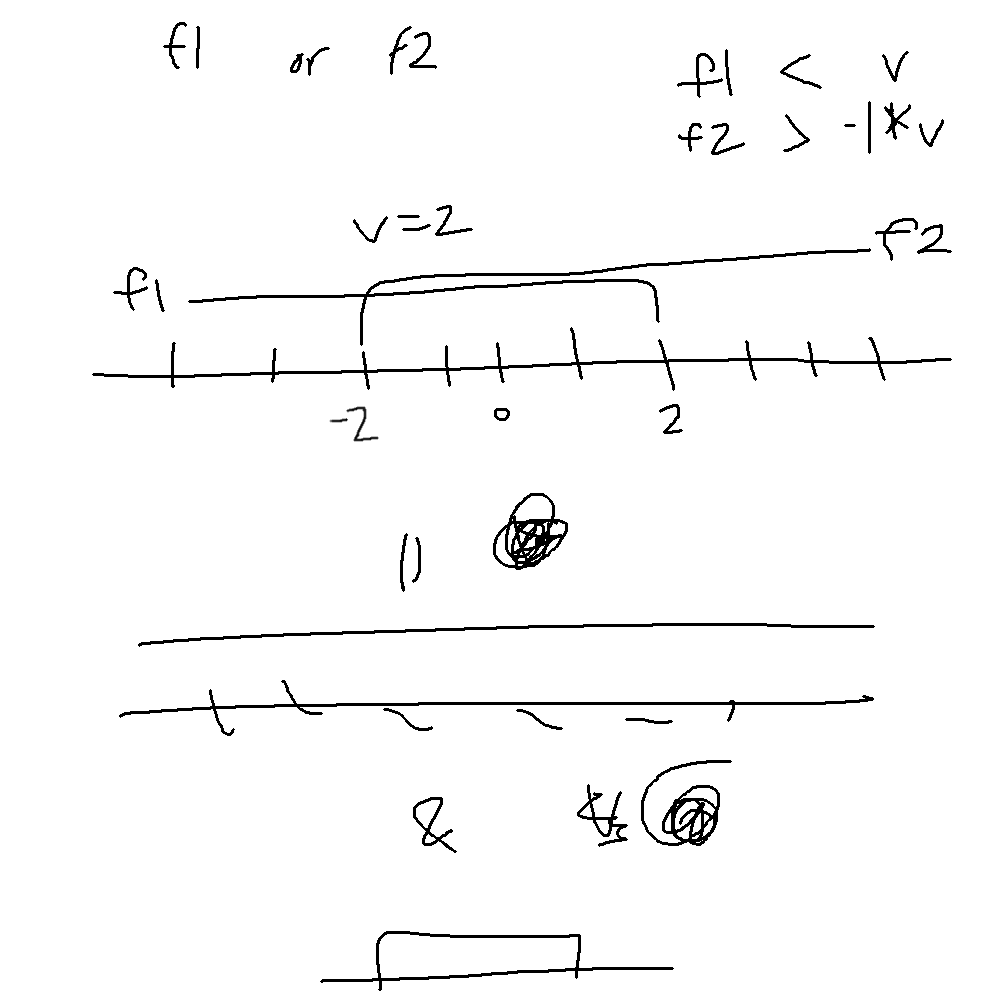 f1 or f2
f1 < v
f2 > -1*v
v=2
f2
f1
-2 0 2
||
&